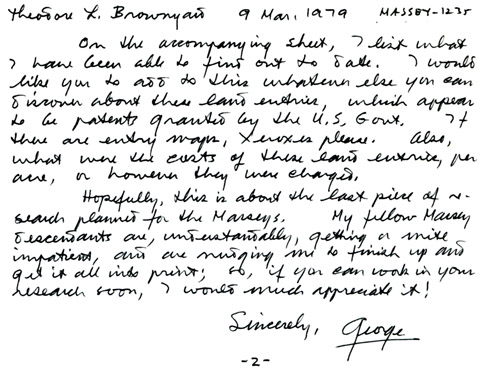 Theodore L. Brownyard 9 Mar, 1979 MASSEY-1235
On the accompanying sheet, I list what
I have been able to find out to date. I would
like you to add to this whatever else you can
discover about these land entries, which appear
to be patents granted by the U.S. Govt. If
there are entry maps, Xeroxes please. Also,
what were the costs of these land entries, per
acre, or however they were charged.
Hopefully, this is about the last piece of re-
search planned for the Masseys. My fellow Massey
descendants are, understandably, getting a mite
impatient, and are nudging me to finish up and
get it all into print; so, if you can work in your
research soon, I would much appreciate it!
Sincerely, George
-2-